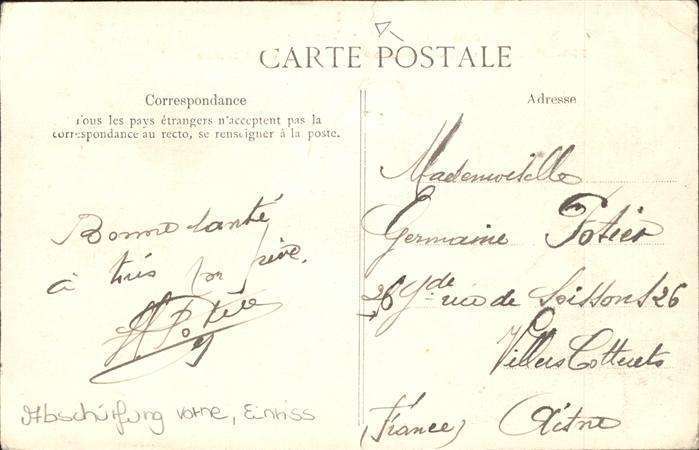 CARTE POSTALE
Correspondance
Tous les pays étrangers n'acceptent pas la
correspondance au recto, se renseigner à la poste.
Bonne santé
à très
Potier
Abschürfung vorne, Einriss
Adresse
Mademoiselle
Germaine Potier
26 Gde rue de Soissons 26
Villers Cotterets
(France) Aisne